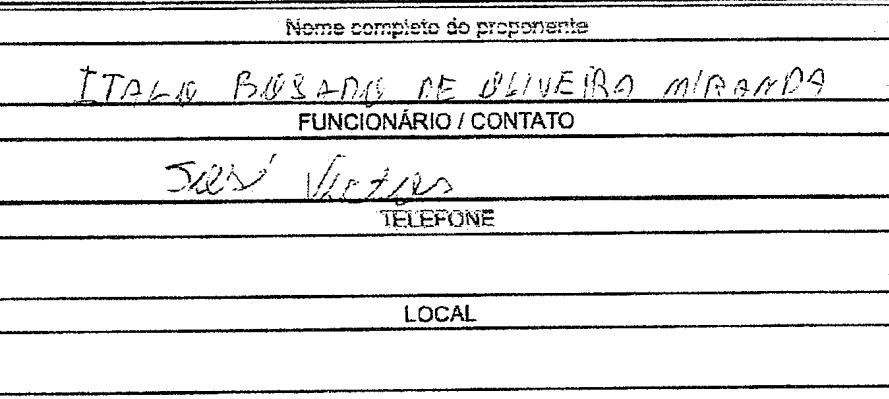 Nome completo do proponente
ITALO BOSADO DE OLIVEIRA MIRANDA
FUNCIONÁRIO / CONTATO
José Victor
TELEFONE
LOCAL